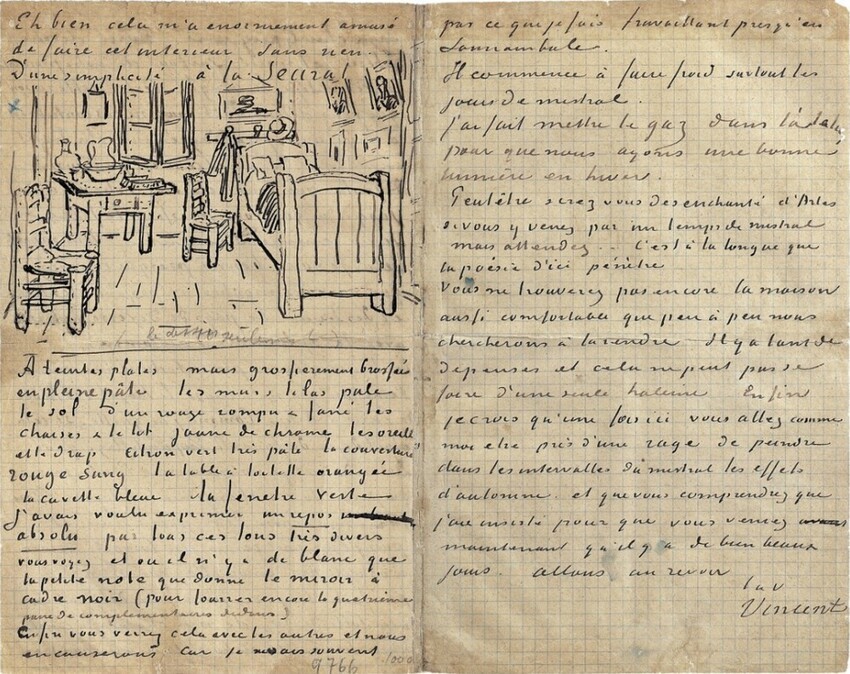 Eh bien cela m'a enormement amusé
de faire cet interieur sans rien.
D'une simplicité à la Seurat
À teintes plates mais grossierement brossées
en pleine pâte les murs lilas pale
le sol d'un rouge rompu & fané les
chaises & le lit jaune de chrome les oreillers
et le drap citron vert très pâle la couverture
rouge sang la table à toilette orangée
la cuvette bleue la fenetre verte
J'avais voulu exprimer un repos
absolu par tous ces tons très divers
vous voyez et où il n'y a de blanc que
la petite note que donne le miroir à
cadre noir (pour fourrer encore la quatrième
paire de complementaires dedans.)
Enfin vous verrez cela avec les autres et nous
en causerons car je ne sais souvent
9766
1000
pas ce que je fais travaillant presqu'en
somnambule.
Il commence à faire froid surtout les
jours de mistral.
J'ai fait mettre le gaz dans
pour que nous ayons une bonne
lumière en hiver.
Peutêtre serez vous desenchanté d'Arles
si vous y venez par un temps de mistral
mais attendez.. C'est à la longue que
la poésie d'ici pénètre
Vous ne trouverez pas encore la maison
aussi comfortable que peu à peu nous
chercherons à la rendre. Il y a tant de
depenses et cela ne peut pas se
faire d'une seule haleine. Enfin
je crois qu'une fois ici vous allez comme
moi etre pris d'une rage de peindre
dans les intervalles du mistral les effets
d'automne. et que vous comprendrez que
j'aie insisté pour que vous venez
maintenant qu'il y a de bien beaux
jours. allons au revoir
t à v
Vincent